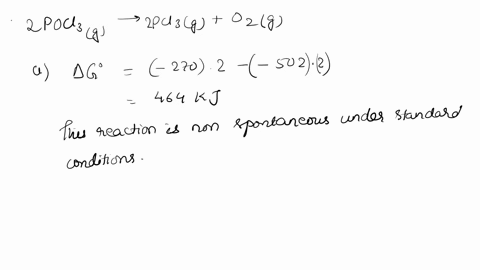 2POCl₃(g) → 2PCl₃(g) + O₂(g)
a) ΔG° = (-270)·2 - (-502)·(2)
= 464 KJ
This reaction is non spontaneous under standard
conditions.